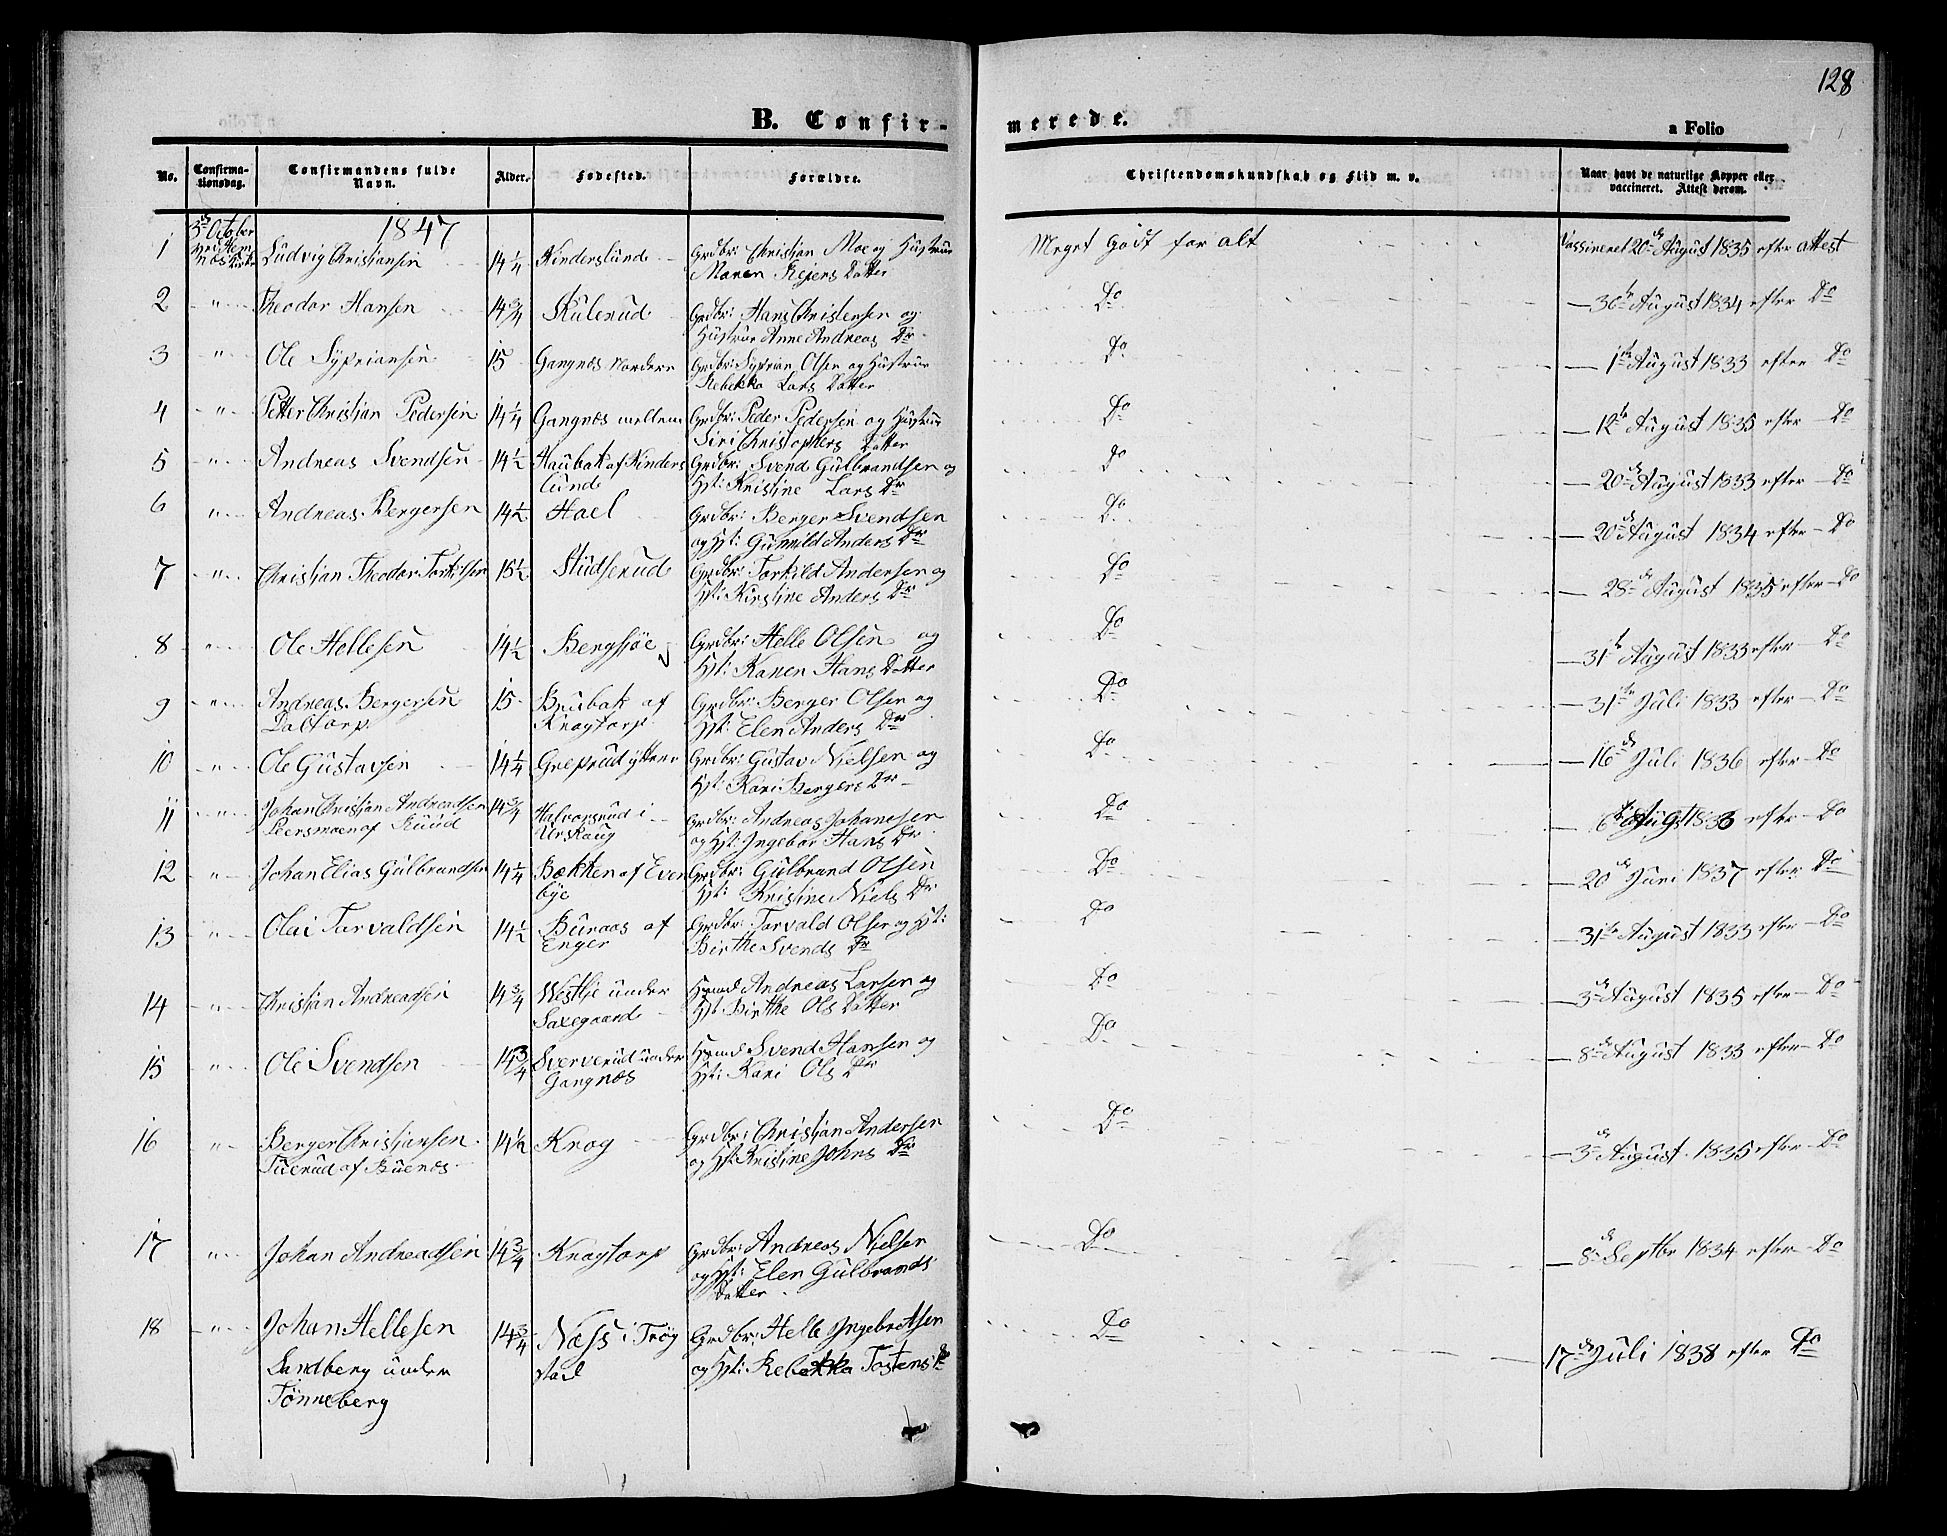 128
B. Confir-
merede.
a Folio
No.
Confirma-
tionsdag.
Confirmandens fulde
Navn.
Alder.
Fødested.
Forældre.
Christendomskundskab og Flid m. v.
Naar havt de naturlige Kopper eller
vaccineret. Attest derom.
3de October 1847
1 Ludvig Christiansen 14 1/4 Kinderslunde Grdbr: Christian Moe og Hustrue
Maren Rejers Datter
Meget Godt for alt
Vassineret 20de August 1835 efter attest
2 " Theodor Hansen 14 3/4 Skulerud Grdbr: Hans Christensen og
Hustrue Anne Andreas Dr
Do 30te August 1834 efter Do
3 " Ole Sypriansen 15 Gangnæs Nordere Grdbr: Syprian Olsen og Hustrue
Rebekka Lars Datter
Do 1te August 1833 efter Do
4 " Petter Christian Pedersen 14 1/4 Gangnæs mellem Grdbr: Peder Pedersen og Hustrue
Siri Christophers Datter
Do 12te August 1835 efter Do
5 " Andreas Svendsen 14 1/2 Haubak af Kinders
lunde
Grdbr: Svend Gulbrandsen og
Hst: Kristine Lars Dr
Do 20de August 1833 efter Do
6 " Andreas Bergersen 14 1/2 Hael Grdbr: Berger Svendsen
og Hst: Gunnild Anders Dr
Do 20de August 1834 efter Do
7 " Christian Theodor Torkilsen 15 1/2 Studserud Grdbr: Torkild Andersen og
Hst: Kirstine Anders Dr
Do 28de August 1835 efter Do
8 " Ole Hellesen 14 1/2 Bergsjøe Grdbr: Helle Olsen og
Hst: Karen Hans Datter
Do 31te August 1833 efter Do
9 " Andreas Bergersen
Daltorp
15 Brubak af
Krogtorp
Grdbr: Berger Olsen og
Hst: Elen Anders Dr
Do 31te Juli 1833 efter Do
10 " Ole Gustavsen 14 1/4 Greprud yttere Grdbr: Gustav Nielsen og
Hst: Kari Bergers Dr
Do 16de Juli 1836 efter Do
11 " Johan Christian Andreadsen
14 3/4 Halvorsrud i
Urskaug
Grdbr: Andreas Johanesen
og Hst: Ingebor Hans Dr
Do 6te Augst 1836 efter Do
12 " Johan Elias Gulbrandsen 14 1/4 Bækken af Even
bye
Grdbr: Gulbrand Olsen
Hst: Kristine Niels Dr
Do 20de Juni 1837 efter Do
13 " Olai Torvaldsen 14 1/2 Buraas af
Enger
Grdbr: Torvald Olsen og Hst:
Birthe Svends Dr
Do 31te August 1833 efter Do
14 " Christian Andreadsen 14 3/4 Westlje under
Saxegaard
Husmd Andreas Larsen og
Hst Birthe Ols Datter
Do 3de August 1835 efter Do
15 " Ole Svendsen 14 3/4 Sververud under
Gangnæs
Husmd Svend Hansen og
Hst: Kari Ols Dr
Do 8de August 1833 efter Do
16 " Berger Christiansen
Tuerud af Buenæs
14 1/2 Krog Grdbr: Christian Andersen
og Hst: Kristine Johns Dr
Do 3de August 1835 efter Do
17 " Johan Andreadsen 14 3/4 Krogtorp Grdbr: Andreas Nielsen
og Hst: Elen Gulbrands
Datter
Do 8de Septbr 1834 efter Do
18 " Johan Hellesen
Sandberg under
Tønneberg
14 3/4 Næss i Trøg
stad
Grdbr: Helle Ingebretsen
og Hst: Rebekka Tostens Dr
Do 17de Juli 1838 efter Do